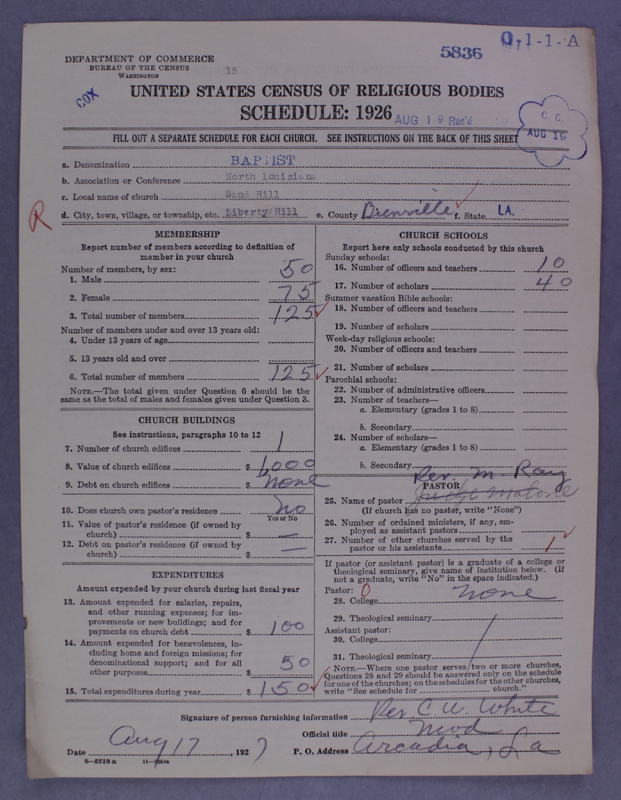 5836
Q-1-1-A
DEPARTMENT OF COMMERCE
BUREAU OF THE CENSUS
WASHINGTON
15
COX
UNITED STATES CENSUS OF RELIGIOUS BODIES
SCHEDULE: 1926
AUG 19 Rec'd
C. C.
AUG 19
FILL OUT A SEPARATE SCHEDULE FOR EACH CHURCH. SEE INSTRUCTIONS ON THE BACK OF THIS SHEET
a. Denomination BAPTIST
b. Association or Conference North Louisiana
c. Local name of church Sand Hill
R
d. City, town, village, or township, etc. Liberty Hill e. County Bienville f. State LA.
MEMBERSHIP
Report number of members according to definition of
member in your church
Number of members, by sex:
1. Male 50
2. Female 75
3. Total number of members 125
Number of members under and over 13 years old:
4. Under 13 years of age
5. 13 years old and over
6. Total number of members 125
NOTE.—The total given under Question 6 should be the
same as the total of males and females given under Question 3.
CHURCH BUILDINGS
See instructions, paragraphs 10 to 12
7. Number of church edifices 1
8. Value of church edifices $ 1,000
9. Debt on church edifices $ none
10. Does church own pastor's residence no
Yes or No
11. Value of pastor's residence (if owned by
church) $ —
12. Debt on pastor's residence (if owned by
church) $ —
EXPENDITURES
Amount expended by your church during last fiscal year
13. Amount expended for salaries, repairs,
and other running expenses; for im-
provements or new buildings; and for
payments on church debt $ 100
14. Amount expended for benevolences, in-
cluding home and foreign missions; for
denominational support; and for all
other purposes $ 50
15. Total expenditures during year $ 150
CHURCH SCHOOLS
Report here only schools conducted by this church
Sunday schools:
16. Number of officers and teachers 10
17. Number of scholars 40
Summer vacation Bible schools:
18. Number of officers and teachers
19. Number of scholars
Week-day religious schools:
20. Number of officers and teachers
21. Number of scholars
Parochial schools:
22. Number of administrative officers
23. Number of teachers—
a. Elementary (grades 1 to 8)
b. Secondary
24. Number of scholars—
a. Elementary (grades 1 to 8)
b. Secondary
Rev. M Ray
PASTOR
25. Name of pastor
(If church has no pastor, write "None")
26. Number of ordained ministers, if any, em-
ployed as assistant pastors
27. Number of other churches served by the
pastor or his assistants 1
If pastor (or assistant pastor) is a graduate of a college or
theological seminary, give name of institution below. (If
not a graduate, write "No" in the space indicated.)
Pastor: 0
28. College none
29. Theological seminary
Assistant pastor:
30. College
31. Theological seminary
NOTE.—Where one pastor serves two or more churches,
Questions 28 and 29 should be answered only on the schedule
for one of the churches; on the schedules for the other churches,
write "See schedule for church."
Signature of person furnishing information Rev. C W. White
Official title Mod
Date Aug 17, 1927 P. O. Address Arcadia, La